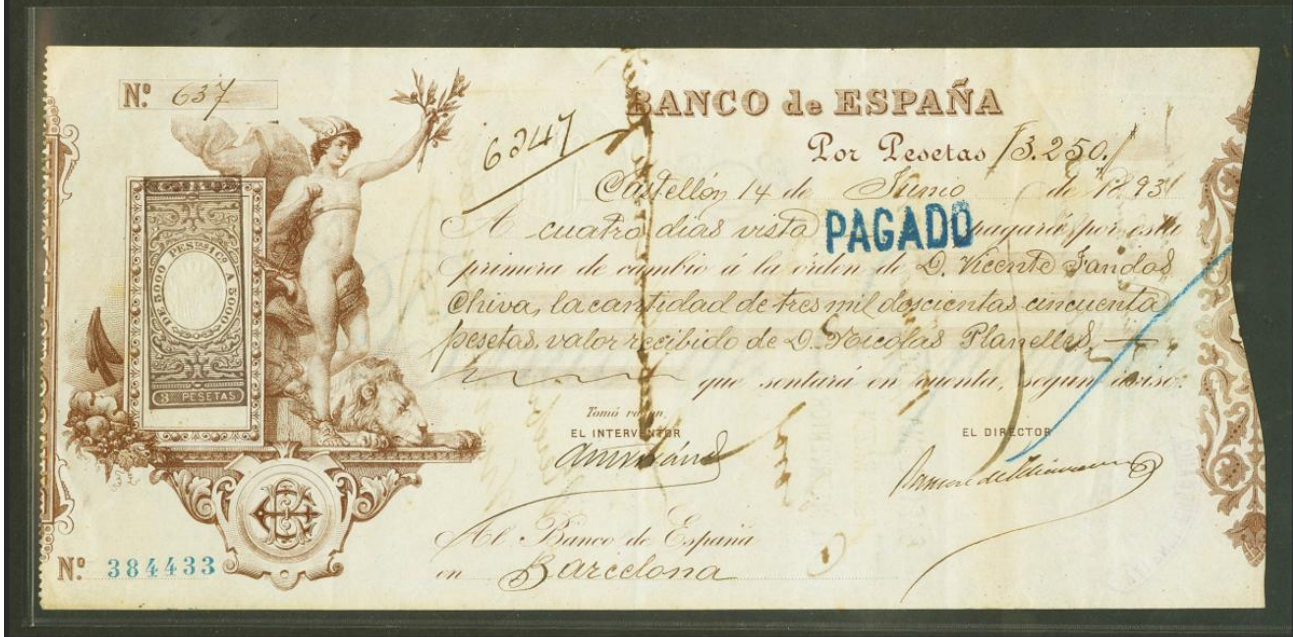 Nº 637
6247
BANCO de ESPAÑA
Por Pesetas /3.250./
Castellón 14 de Junio de 1893
A cuatro dias vista PAGADO pagará por esta
primera de cambio á la órden de D. Vicente Fandos
Chiva, la cantidad de tres mil doscientas cincuenta
pesetas valor recibido de D. Nicolas Planelles
que sentará en cuenta, segun aviso.
DE 500 PESTAS 1 CO A 5000
3 PESETAS
Tomó razon,
EL INTERVENTOR
EL DIRECTOR
Al Banco de España
en Barcelona
Nº 384433